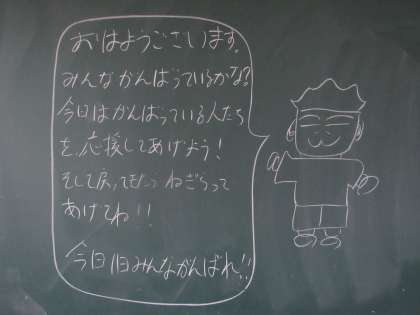 おはようございます。
みんなかんばっているかな?
今日はかんばっている人たち
を、応援してあげよう!
そして戻ってきたら ねぎらって
あげてね!!
今日1日みんなかんばれ!!